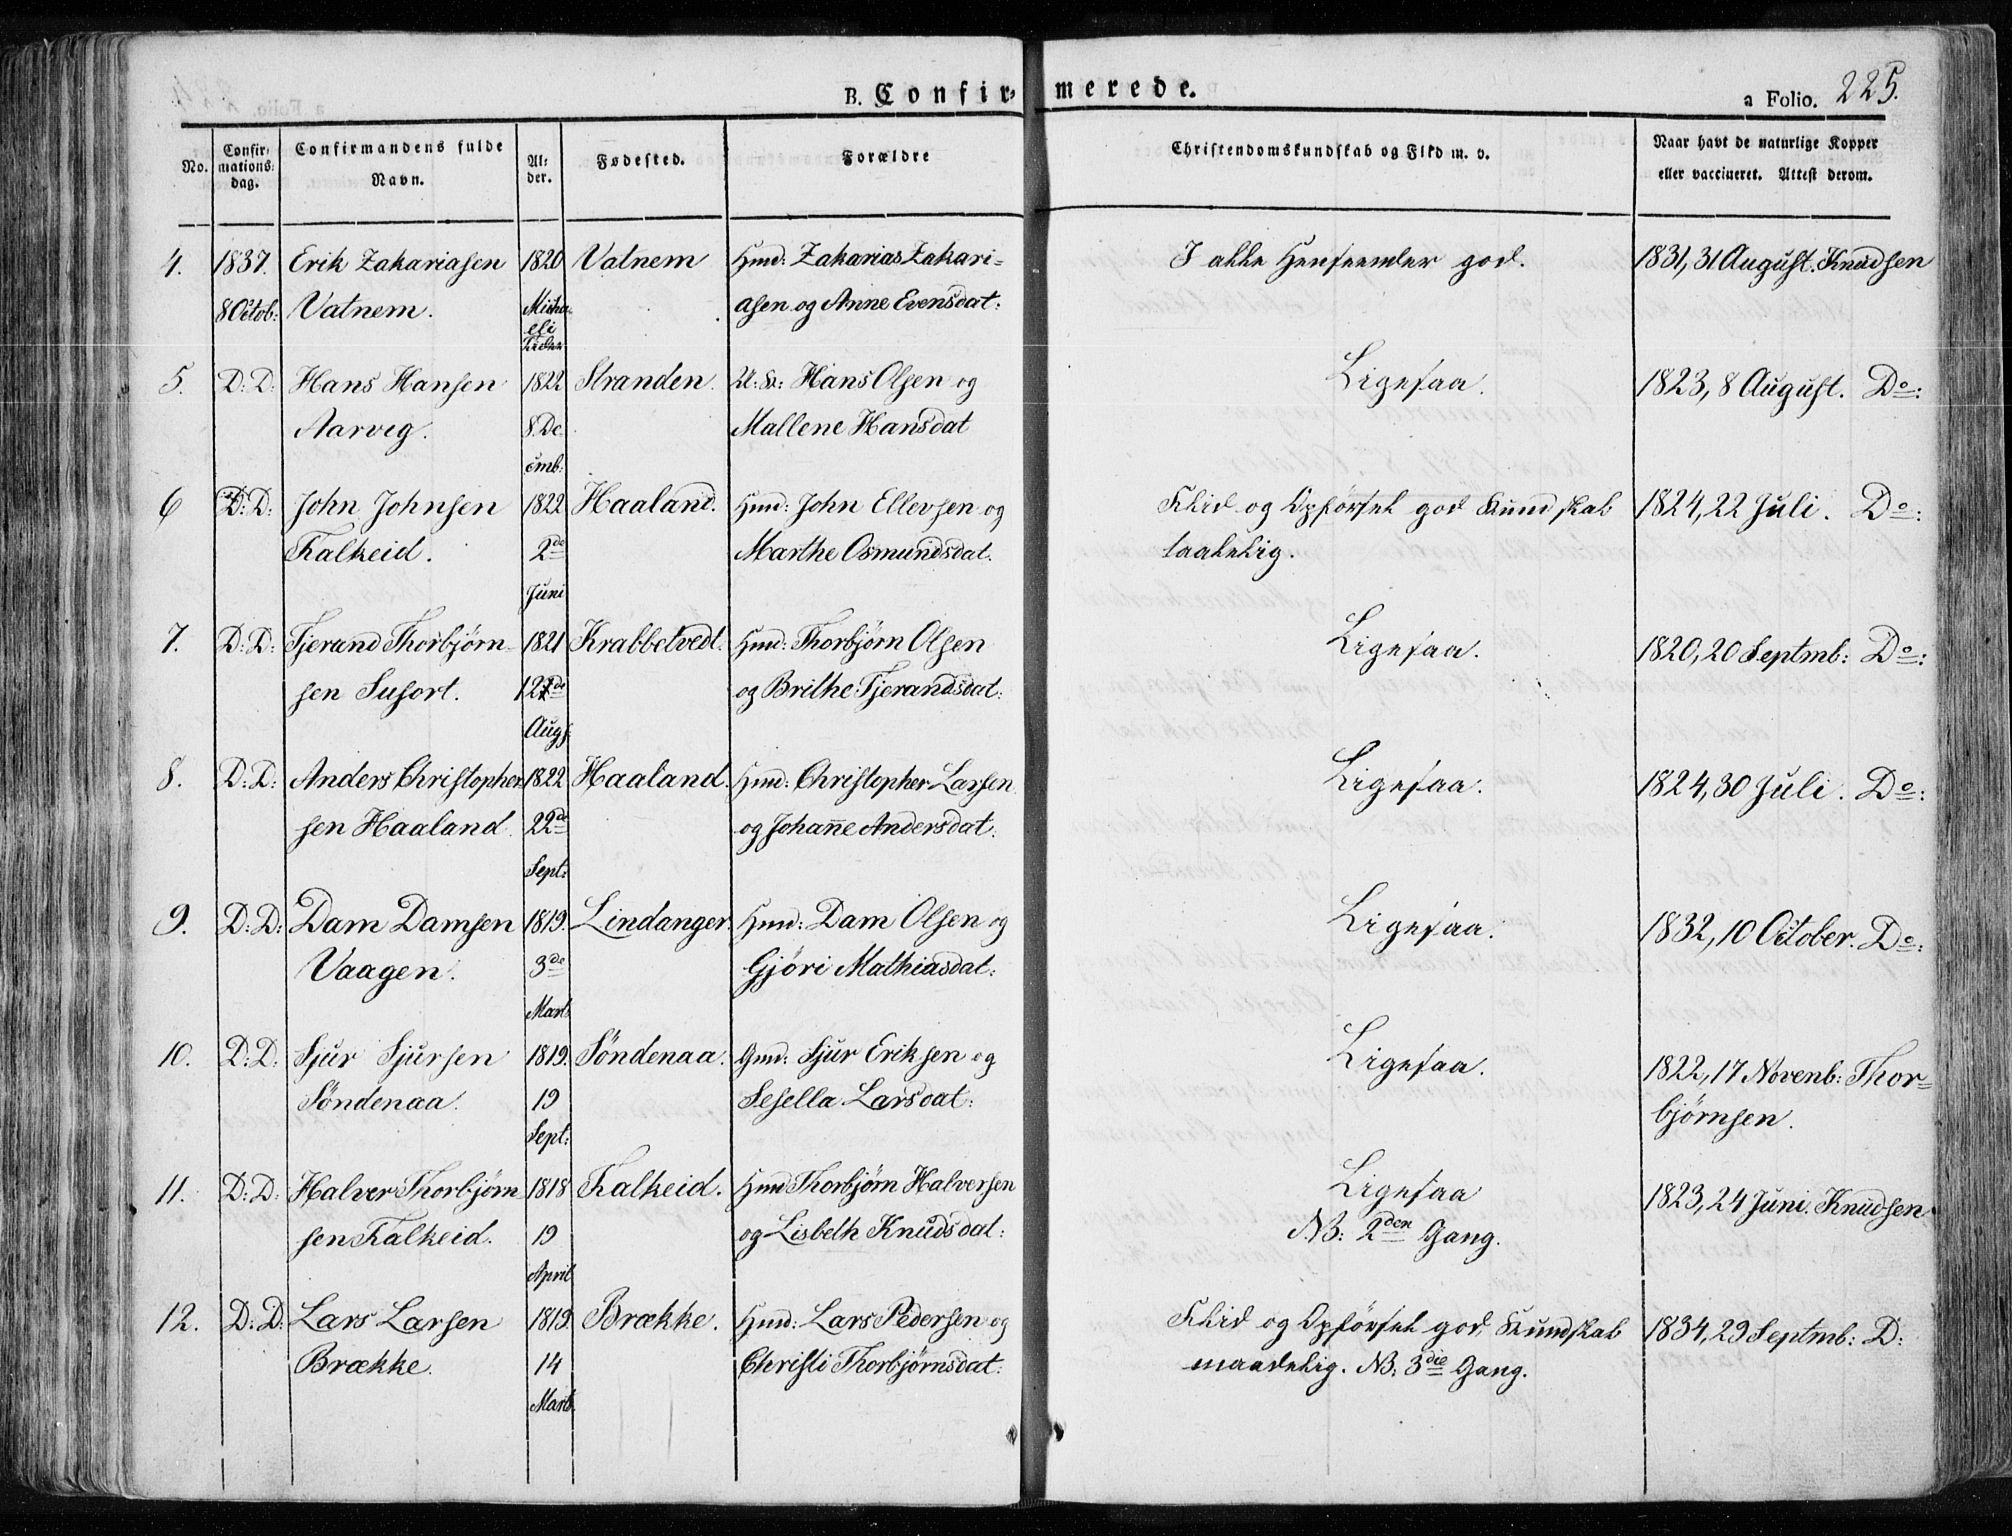 B. Confirmerede.
a Folio. 225.
No.
Confirmations dag.
Confirmandens fulde Navn.
Alder.
Fødested.
Forældre
Christendomskundskab og Flid m. v.
Naar havt de naturlige Kopper
eller vaccineret. Attest derom.
4. 1837. Erik Zakariasen 1820 Vatnem Gmd: Zakarias Zakari- I alle Henseender god. 1831, 31 August. Knudsen
8 Octob: Vatnem. asen og Anne Evensdat:
5. D: D: Hans Hansen 1822 Stranden. Hans Olsen og Ligesaa. 1823, 8 August. Do:
Aarvig. 8. De- Mallene Hansdat
cmb:
6 D: D: John Johnsen 1822 Haaland. Hmd: John Ellevsen og Flid og Opførsel god Kundskab 1824, 22 Juli. Do:
Falkeid. 2de Marthe Osmundsdat. taalelig.
Juni
7. D: D: Tjerand Thorbjørn- 1821 Krabbetvedt. Hmd: Thorbjørn Olsen Ligesaa. 1820, 20 Septmb: Do:
sen Susort. og Brithe Tjerandsdat:
Augs
8. D: D: Anders Christopher- 1822 Haaland. Hmd: Christopher Larsen Ligesaa. 1824, 30 Juli. Do:
sen Haaland. 22de og Johanne Andersdat:
Sept:
9. D: D: Dam Damsen 1819. Lindanger. Hmd: Dam Olsen og Ligesaa. 1832, 10 October. Do:
Vaagen. 3de Gjøri Mathiasdat:
Marts
10. D: D: Sjur Sjursen 1819. Søndenaa. Gmd: Sjur Eriksen og Ligesaa. 1822, 17 Novenb: Thor-
Søndenaa. 19 Sesella Larsdat: bjørnsen.
Sept:
11. D: D: Halver Thorbjørn- 1818 Falkeid. Hmd Thorbjørn Halversen Ligesaa 1823, 24 Juni. Knudsen
sen Falkeid. 19 og Lisbeth Knudsdat: NB: 2den Gang.
April
12. D: D: Lars Larsen 1819 Brække. Hmd: Lars Pedersen og Flid og Opførsel god, Kundskab 1834, 29 Septmb: D:
Brække. 14 Christi Thorbjørnsdat: maadelig. NB: 3die Gang.
Marts